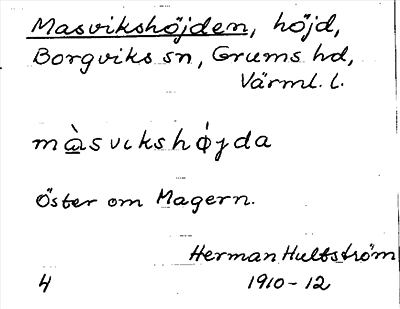 Masvikshöjden, höjd,
Borgviks sn, Grums hd,
Värml. l.
mà̱svıkshǿjda
Öster om Magern.
Herman Hultström
4 1910-12